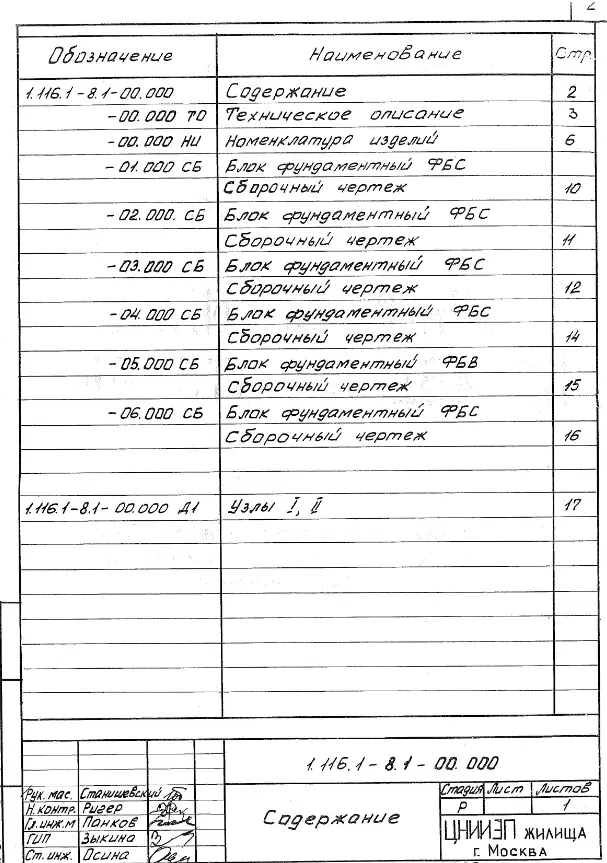 2
Обозначение Наименование Стр.
1.116.1-8.1-00.000 Содержание 2
-00.000 ТО Техническое описание 3
-00.000 НИ Номенклатура изделий 6
-01.000 СБ Блок фундаментный ФБС
Сборочный чертеж 10
-02.000. СБ Блок фундаментный ФБС
Сборочный чертеж 11
-03.000 СБ Блок фундаментный ФБС
Сборочный чертеж 12
-04.000 СБ Блок фундаментный ФБС
Сборочный чертеж 14
-05.000 СБ Блок фундаментный ФБВ
Сборочный чертеж 15
-06.000 СБ Блок фундаментный ФБС
Сборочный чертеж 16
1.116.1-8.1-00.000 Д1 Узлы I, II 17
1.116.1-8.1-00.000
Рук. мас. Станишевский
Н.контр. Ригер
Гл.инж.м Панков
ГИП Зыкина
Ст. инж. Осина
Содержание
Стадия Лист Листов
Р 1
ЦНИИЭП жилища
г. Москва